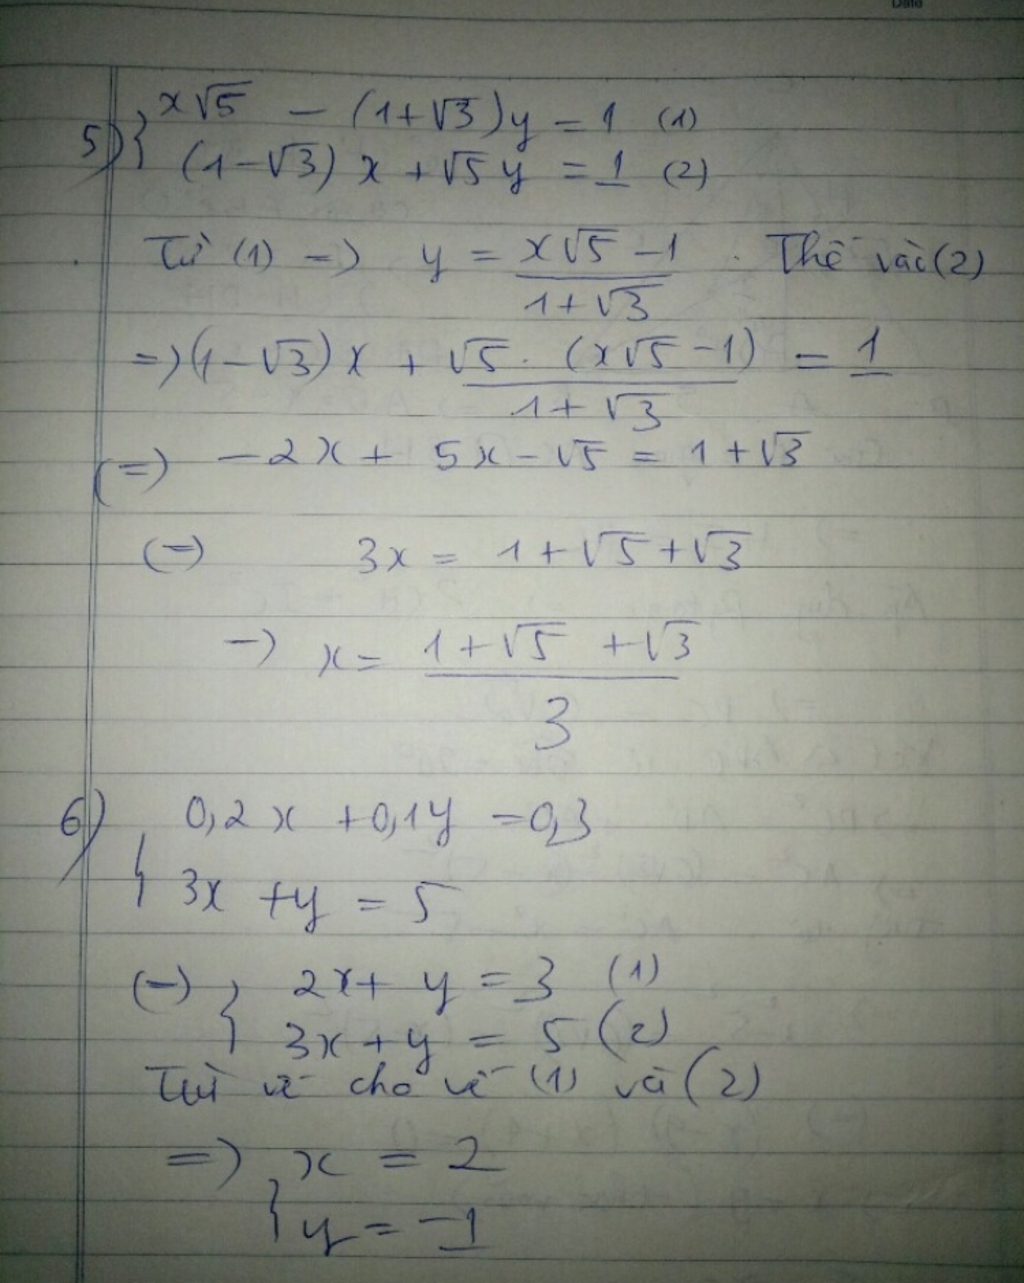 Date
5) { x√5 - (1+√3)y = 1 (1)
(1-√3) x + √5 y = 1 (2)
Từ (1) => y = (x√5 - 1)/(1+√3) . Thế vào (2)
=> (1-√3) x + √5 . (x√5 - 1)/(1+√3) = 1
(=) -2x + 5x - √5 = 1 + √3
(=) 3x = 1 + √5 + √3
-) x = (1 + √5 + √3)/3
6) { 0,2x + 0,1y = 0,3
3x + y = 5
(=) { 2x + y = 3 (1)
3x + y = 5 (2)
Trừ vế cho vế (1) và (2)
=> { x = 2
y = -1